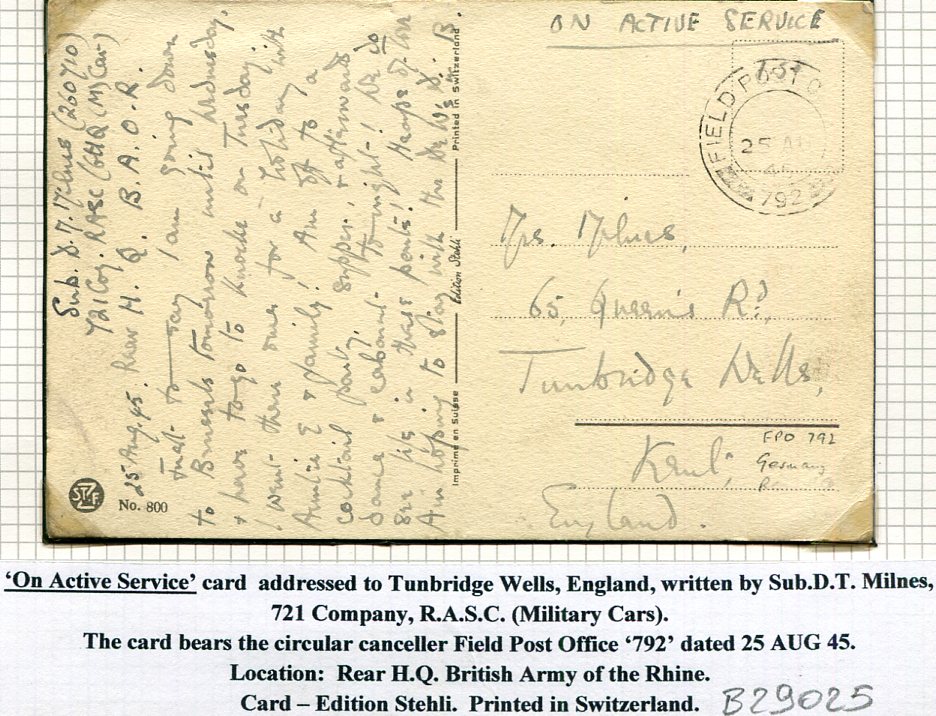 ON ACTIVE SERVICE
FIELD POST O
25 AU
45
792
Sub. D. T. Milnes (260710)
721 Coy. RASC (GHQ) (M/Car)
25 Aug. 45. Rear H. Q. B. A. O. R.
Just to say I am going down
to Brussels tomorrow until Wednesday,
& have to go to Knocke on Tuesday.
I went there once for a holiday with
Auntie E & family! Am off to a
cocktail party, supper, & afterwards
dance & cabaret to-night! We do
see life in these parts! Heaps of love
Am hoping to stay with the De W's in B.
Mrs. Milnes,
65, Queen's Rd,
Tunbridge Wells,
Kent,
England.
FPO 792
Germany
Printed in Switzerland
Edition Stehli
Imprimé en Suisse
No. 800
'On Active Service' card addressed to Tunbridge Wells, England, written by Sub.D.T. Milnes,
721 Company, R.A.S.C. (Military Cars).
The card bears the circular canceller Field Post Office '792' dated 25 AUG 45.
Location: Rear H.Q. British Army of the Rhine.
Card – Edition Stehli. Printed in Switzerland.
B29025